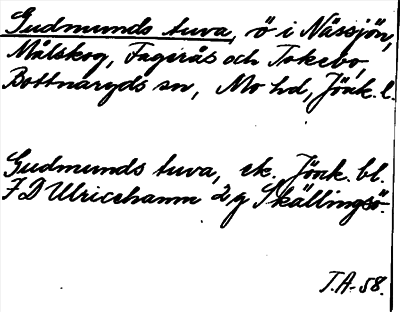 Gudmunds tuva, ö i Nässjön,
Målskog, Fagerås och Tokebo,
Bottnaryds sn, Mo hd, Jönk. l.
Gudmunds tuva, ek. Jönk. bl.
7 D Ulricehamn 2 g Skällingsö.
T.A. 58.